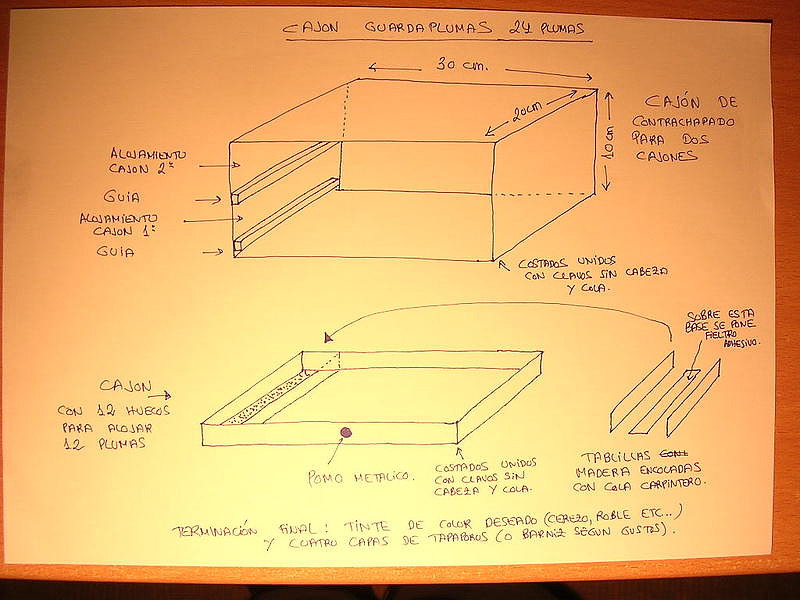 CAJON GUARDAPLUMAS 24 PLUMAS
30 cm.
20cm
10 cm
CAJÓN DE
CONTRACHAPADO
PARA DOS
CAJONES
ALOJAMIENTO
CAJON 2º
GUIA
ALOJAMIENTO
CAJON 1º
GUIA
COSTADOS UNIDOS
CON CLAVOS SIN CABEZA
Y COLA.
SOBRE ESTA
BASE SE PONE
FIELTRO
ADHESIVO.
CAJON
CON 12 HUECOS
PARA ALOJAR
12 PLUMAS
POMO METALICO.
COSTADOS UNIDOS
CON CLAVOS SIN
CABEZA Y COLA.
TABLILLAS CON
MADERA ENCOLADAS
CON COLA CARPINTERO.
TERMINACIÓN FINAL: TINTE DE COLOR DESEADO (CEREZO, ROBLE ETC..)
Y CUATRO CAPAS DE TAPAPOROS (O BARNIZ SEGUN GUSTOS).